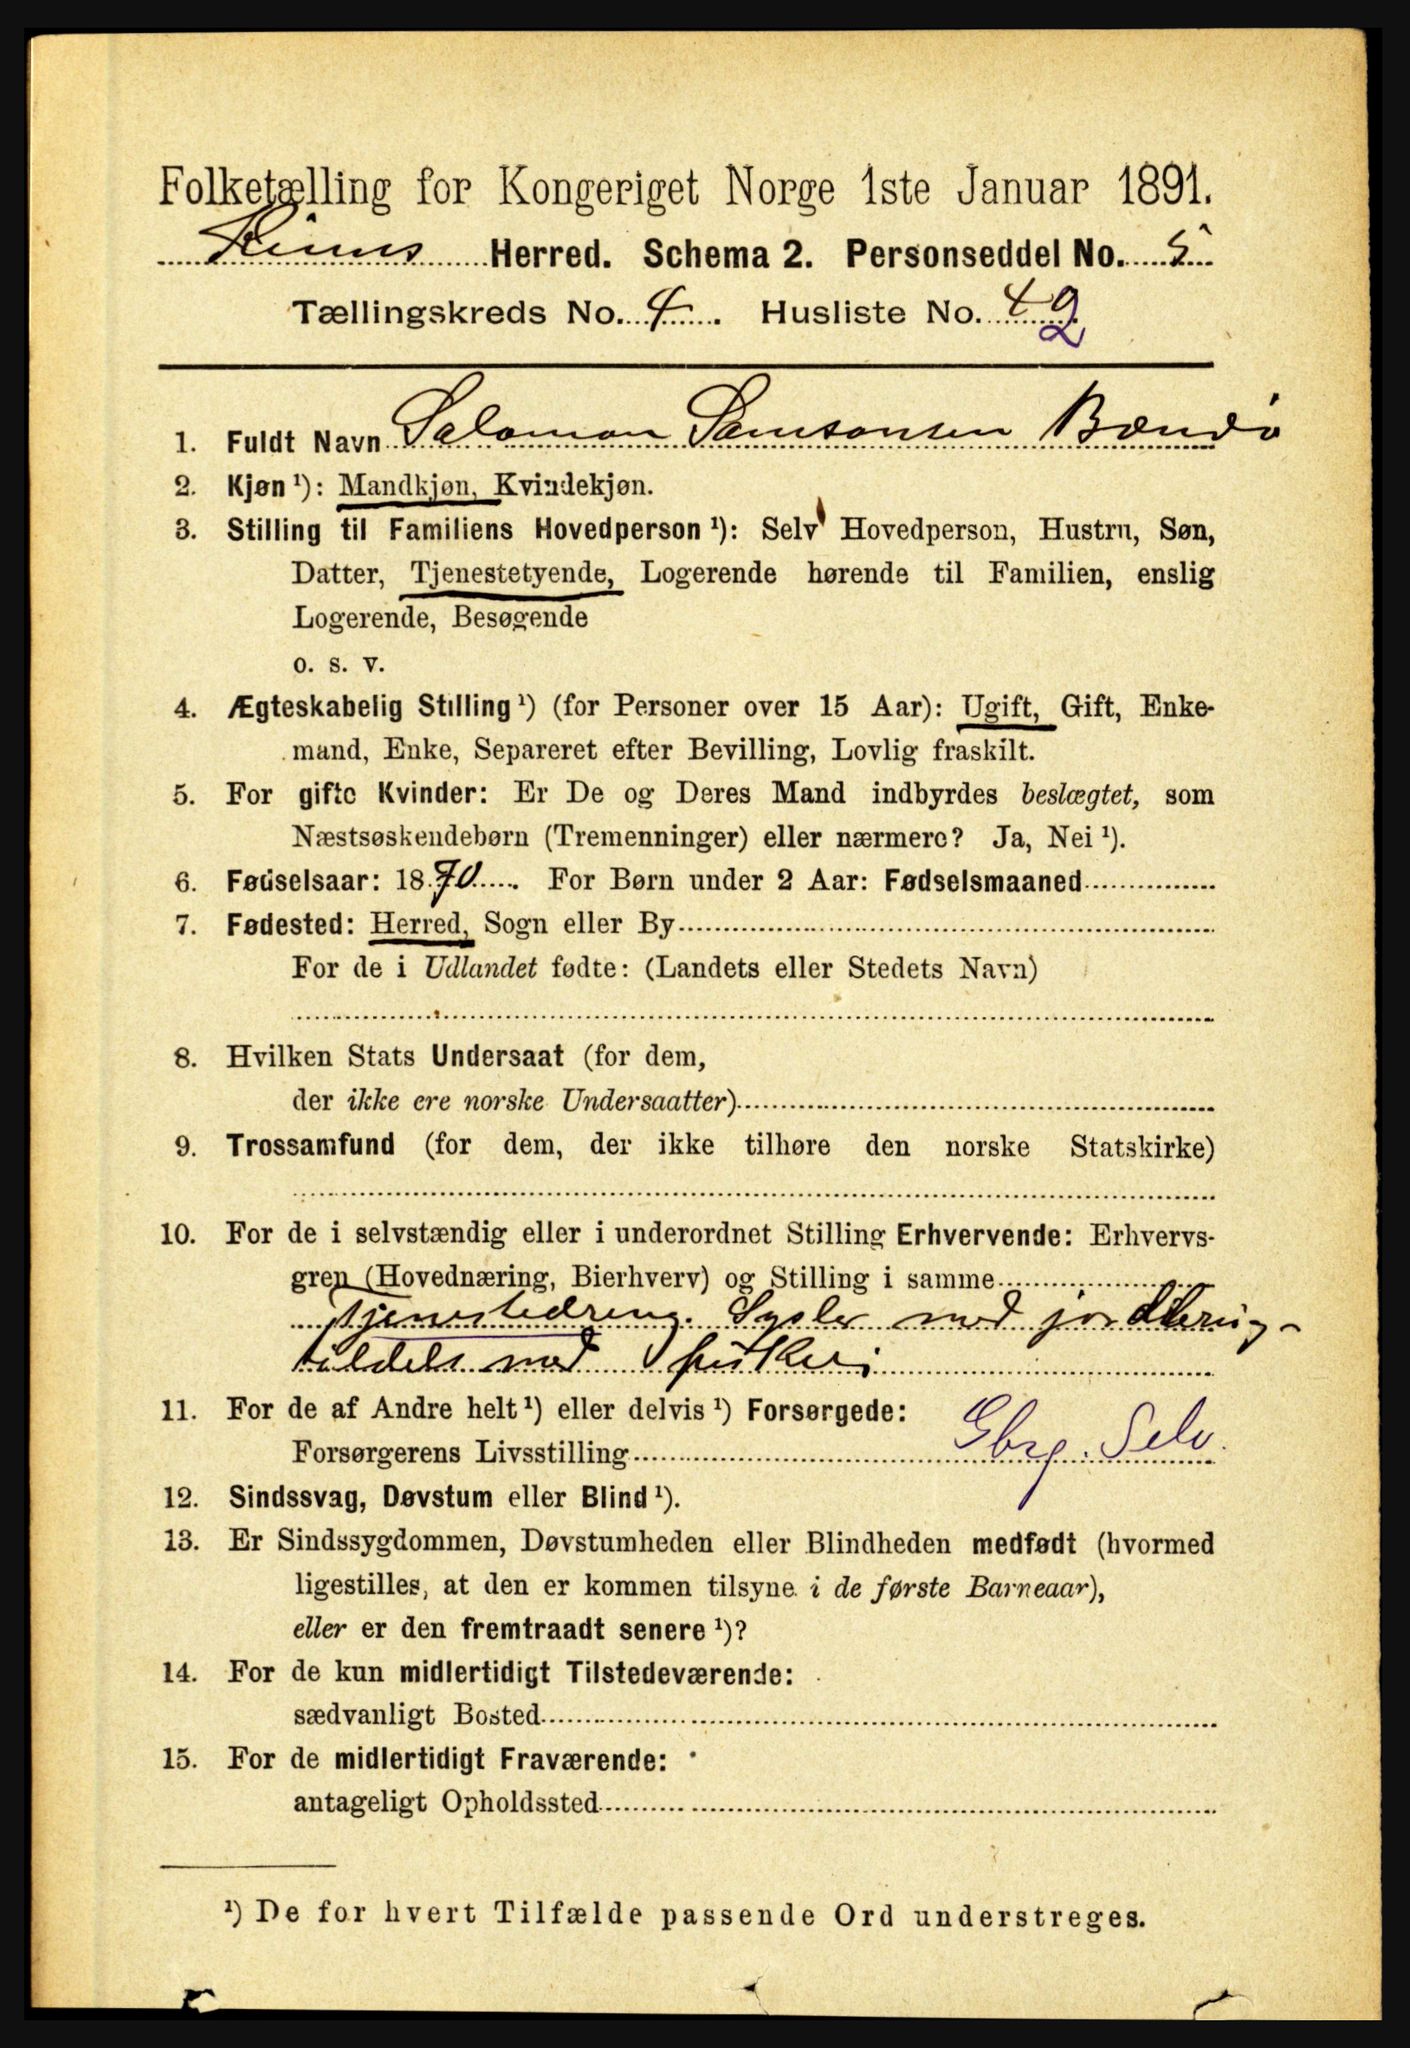 Folketælling for Kongeriget Norge 1ste Januar 1891.
Kinns Herred. Schema 2. Personseddel No. 5
Tællingskreds No. 4. Husliste No. 42
1. Fuldt Navn Salomon Samsonsen Bændø
2. Kjøn ¹): Mandkjøn, Kvindekjøn.
3. Stilling til Familiens Hovedperson ¹): Selv Hovedperson, Hustru, Søn,
Datter, Tjenestetyende, Logerende hørende til Familien, enslig
Logerende, Besøgende
o. s. v.
4. Ægteskabelig Stilling ¹) (for Personer over 15 Aar): Ugift, Gift, Enke-
mand, Enke, Separeret efter Bevilling, Lovlig fraskilt.
5. For gifte Kvinder: Er De og Deres Mand indbyrdes beslægtet, som
Næstsøskendebørn (Tremenninger) eller nærmere? Ja, Nei ¹).
6. Fødselsaar: 1870. For Børn under 2 Aar: Fødselsmaaned
7. Fødested: Herred, Sogn eller By
For de i Udlandet fødte: (Landets eller Stedets Navn)
8. Hvilken Stats Undersaat (for dem,
der ikke ere norske Undersaatter)
9. Trossamfund (for dem, der ikke tilhøre den norske Statskirke)
10. For de i selvstændig eller i underordnet Stilling Erhvervende: Erhvervs-
gren (Hovednæring, Bierhverv) og Stilling i samme
Tjenestedreng. Sysler med jord
tildels med fiskeri
11. For de af Andre helt ¹) eller delvis ¹) Forsørgede:
Forsørgerens Livsstilling Gbrg. Selv.
12. Sindssvag, Døvstum eller Blind ¹).
13. Er Sindssygdommen, Døvstumheden eller Blindheden medfødt (hvormed
ligestilles, at den er kommen tilsyne i de første Barneaar),
eller er den fremtraadt senere ¹)?
14. For de kun midlertidigt Tilstedeværende:
sædvanligt Bosted
15. For de midlertidigt Fraværende:
antageligt Opholdssted
¹) De for hvert Tilfælde passende Ord understreges.